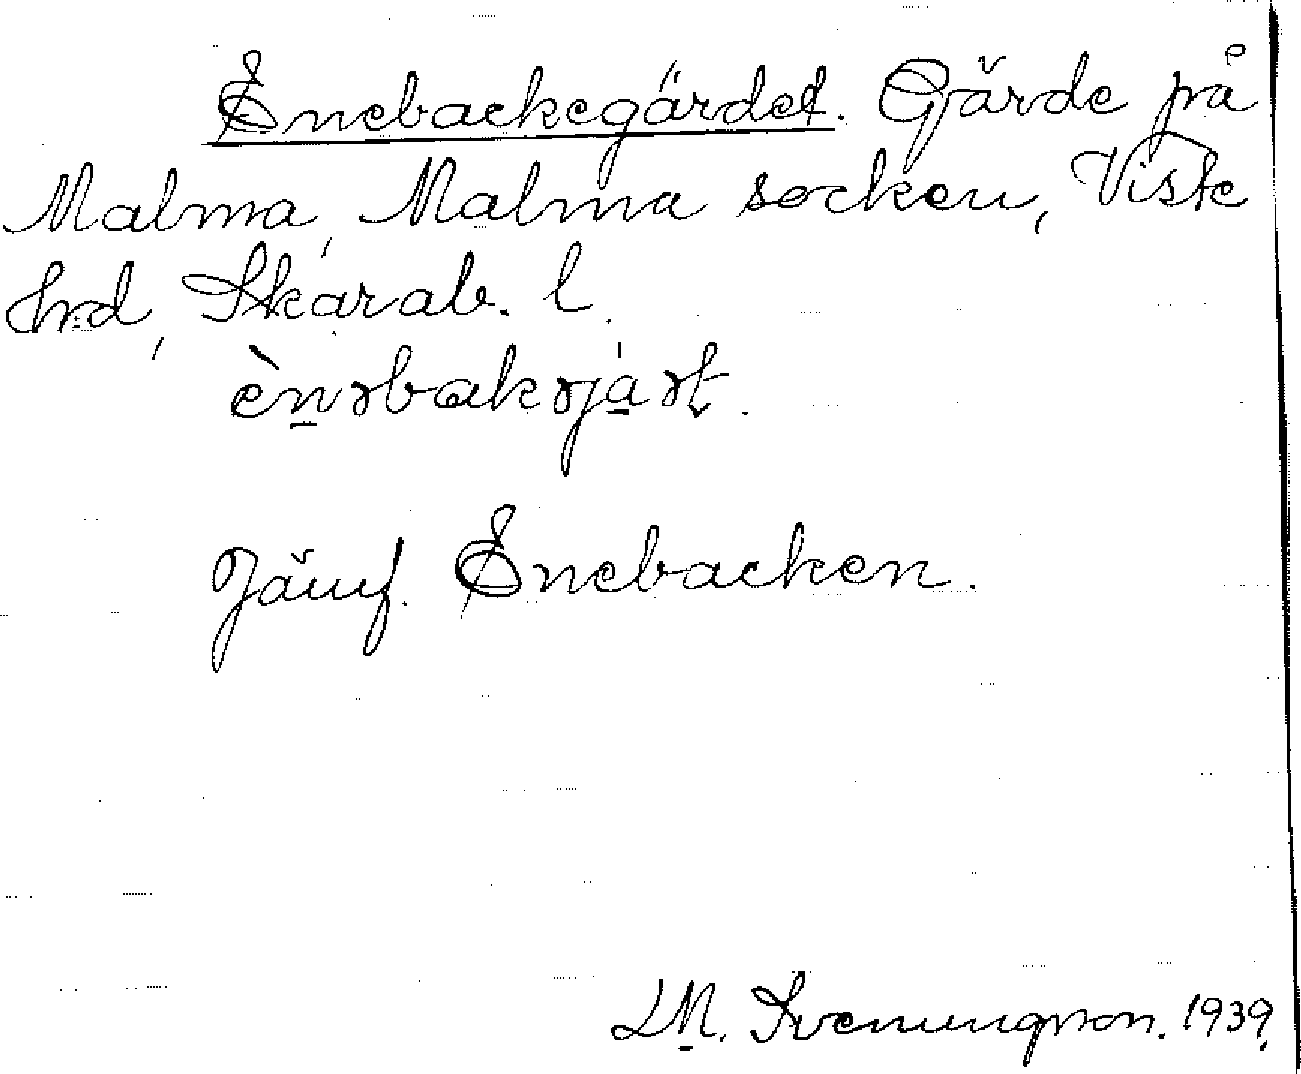 Enebackegärdet. Gärde på
Malma, Malma socken, Viste
hrd, Skarab. l.
Jämf. Enebacken.
LM. Svenungsson. 1939.